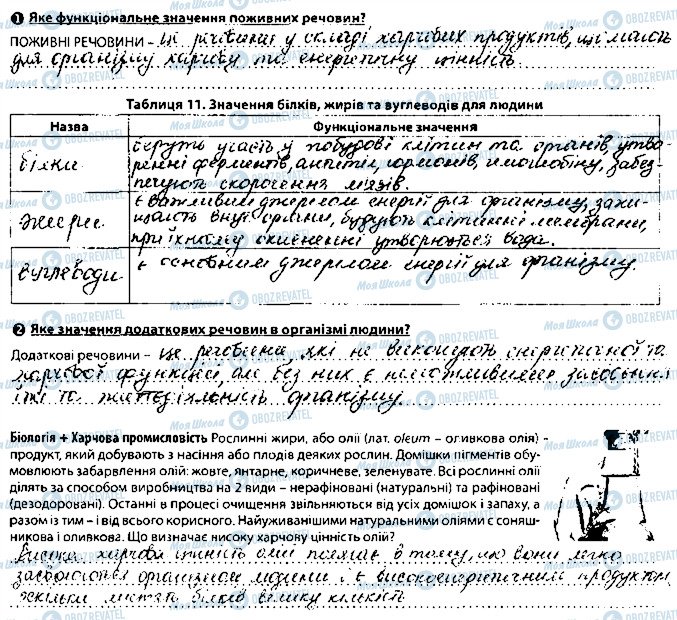 ❶ Яке функціональне значення поживних речовин?
ПОЖИВНІ РЕЧОВИНИ – це речовини у складі харчових продуктів, що мають
для організму харчову та енергетичну цінність.
Таблиця 11. Значення білків, жирів та вуглеводів для людини
Назва Функціональне значення
білки
беруть участь у побудові клітин та органів, утво-
ренні ферментів, антитіл, гормонів, гемоглобіну, забез-
печують скорочення м'язів.
жири
є важливим джерелом енергії для організму, захи-
щають внут. органи, будують клітинні мембрани,
при їхньому окисненні утворюється вода.
вуглеводи
є основним джерелом енергії для організму.
❷ Яке значення додаткових речовин в організмі людини?
Додаткові речовини – це речовини які не виконують енергетичної та
харчової функції, але без них є неможливим засвоєння
їжі та життєдіяльність організму.
Біологія + Харчова промисловість Рослинні жири, або олії (лат. oleum – оливкова олія) –
продукт, який добувають з насіння або плодів деяких рослин. Домішки пігментів обу-
мовлюють забарвлення олій: жовте, янтарне, коричневе, зеленувате. Всі рослинні олії
ділять за способом виробництва на 2 види – нерафіновані (натуральні) та рафіновані
(дезодоровані). Останні в процесі очищення звільняються від усіх домішок і запаху, а
разом із тим – і від всього корисного. Найуживанішими натуральними оліями є соняш-
никова і оливкова. Що визначає високу харчову цінність олій?
Висока харчова цінність олії полягає в тому, що вони легко
засвоюються організмом людини і є високоенергетичним продуктом
оскільки містять білків велику кількість
Моя Школа OBOZREVATEL